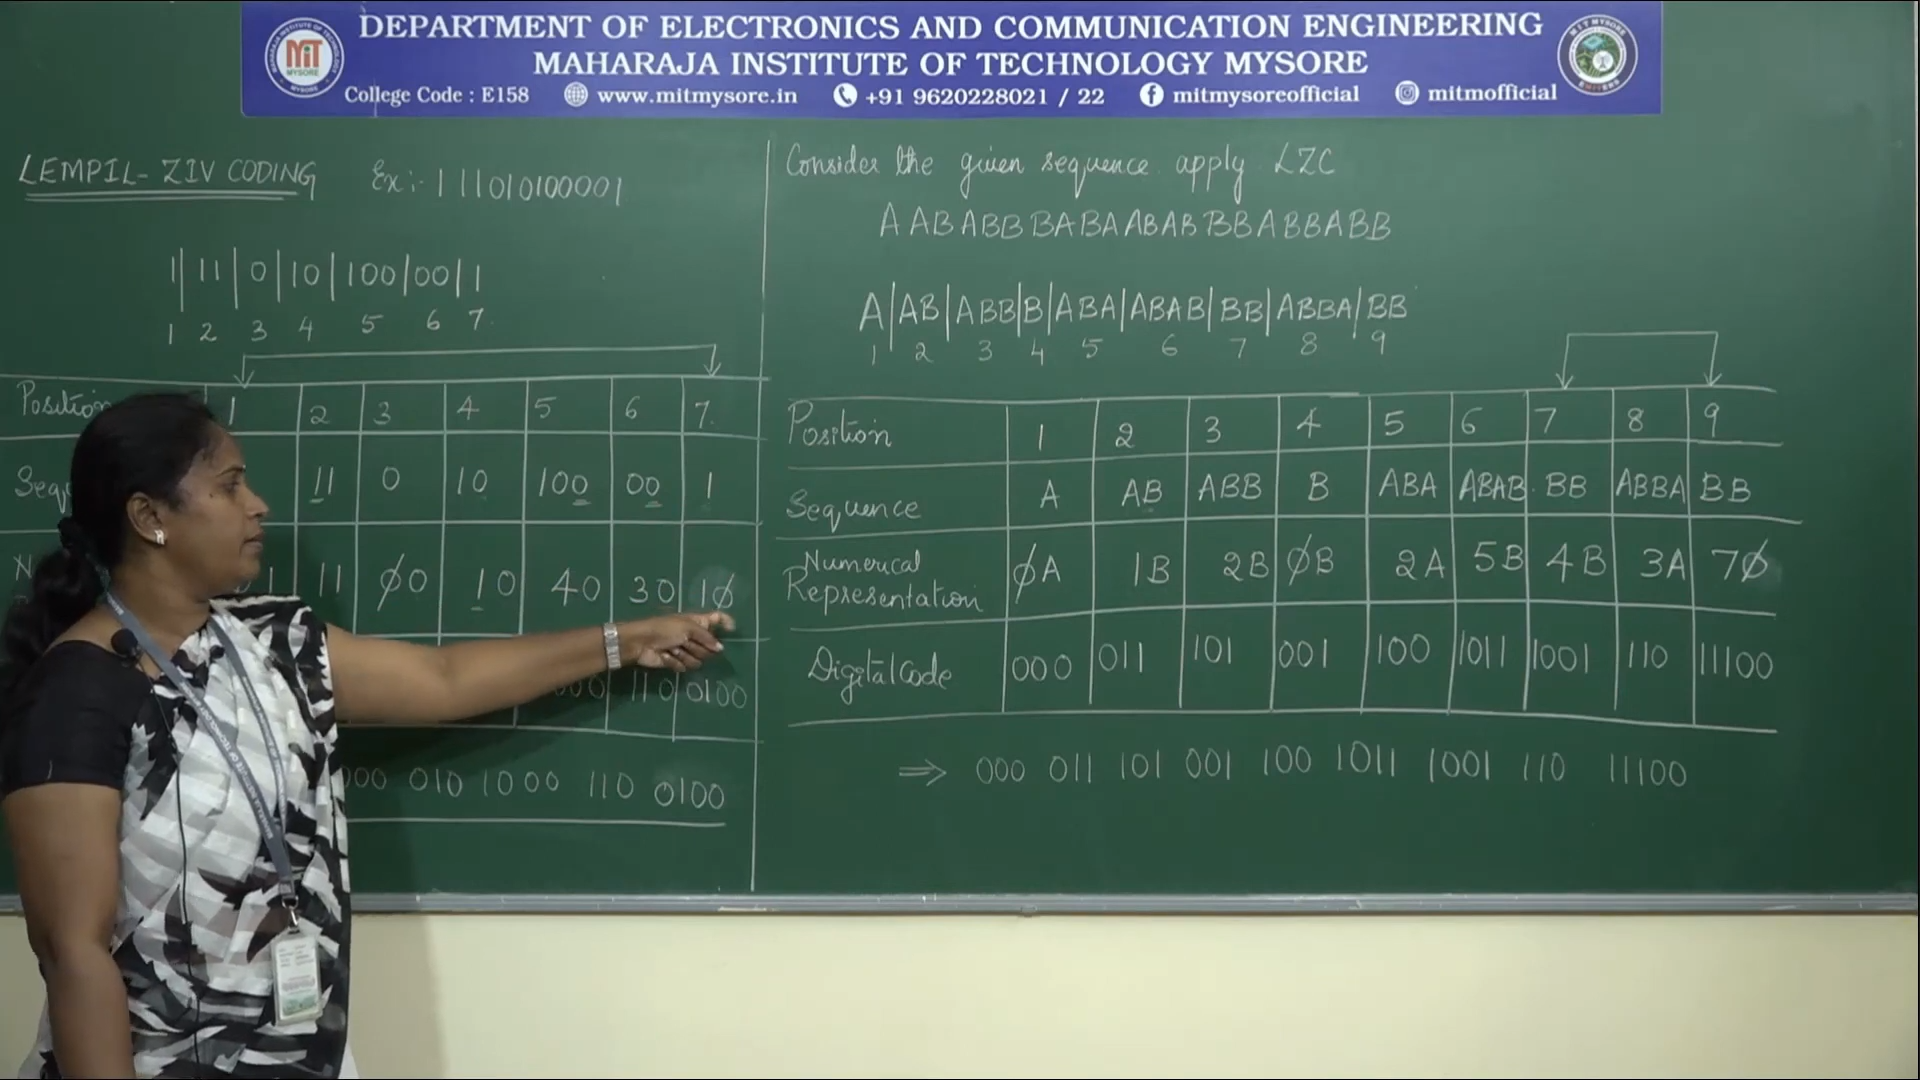 DEPARTMENT OF ELECTRONICS AND COMMUNICATION ENGINEERING
MAHARAJA INSTITUTE OF TECHNOLOGY MYSORE
College Code : E158 www.mitmysore.in +91 9620228021 / 22 mitmysoreofficial mitmofficial
MIT
MYSORE
LEMPIL-ZIV CODING Ex:- 111010100001
1| 11 | 0 | 10 | 100 | 00 | 1
1 2 3 4 5 6 7
Position 1 2 3 4 5 6 7
11 0 10 100 00 1
11 ϕ0 10 40 30 1ϕ
110 0100
010 1000 110 0100
Consider the given sequence apply LZC
AABABBBABAABABBBABBABB
A|AB|ABB|B|ABA|ABAB|BB|ABBA|BB
1 2 3 4 5 6 7 8 9
Position 1 2 3 4 5 6 7 8 9
Sequence A AB ABB B ABA ABAB BB ABBA BB
Numerical Representation ϕA 1B 2B ϕB 2A 5B 4B 3A 7ϕ
Digital Code 000 011 101 001 100 1011 1001 110 11100
⇒ 000 011 101 001 100 1011 1001 110 11100